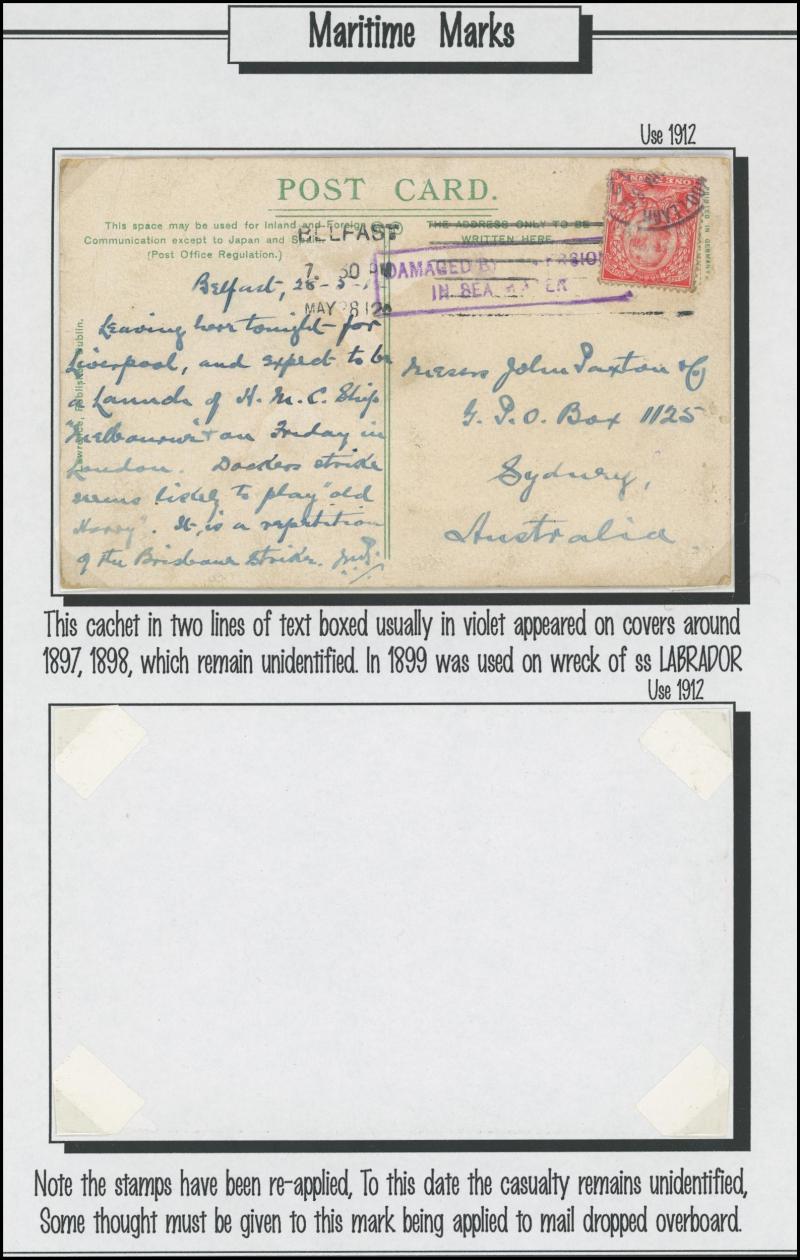 Maritime Marks
Use 1912
POST CARD.
This space may be used for Inland and Foreign
Communication except to Japan and
(Post Office Regulation.)
THE ADDRESS ONLY TO BE
WRITTEN HERE
PRINTED IN GERMANY
BELFAST
7. 30 PM
MAY 28 12
DAMAGED BY
IN SEA WATER
ONE PENNY
Belfast, 28-5-
Leaving here tonight for
Liverpool, and expect to be
a Launch of H. M. C. Ship
"Melbourne" on Friday in
London. Dockers strike
seems likely to play "old
Harry". It is a repetition
of the Brisbane Strike.
Lawrence, Publisher, Dublin.
Messrs John Paxton & Co
G. P. O. Box 1125
Sydney,
Australia
This cachet in two lines of text boxed usually in violet appeared on covers around
1897, 1898, which remain unidentified. In 1899 was used on wreck of ss LABRADOR
Use 1912
Note the stamps have been re-applied, To this date the casualty remains unidentified,
Some thought must be given to this mark being applied to mail dropped overboard.